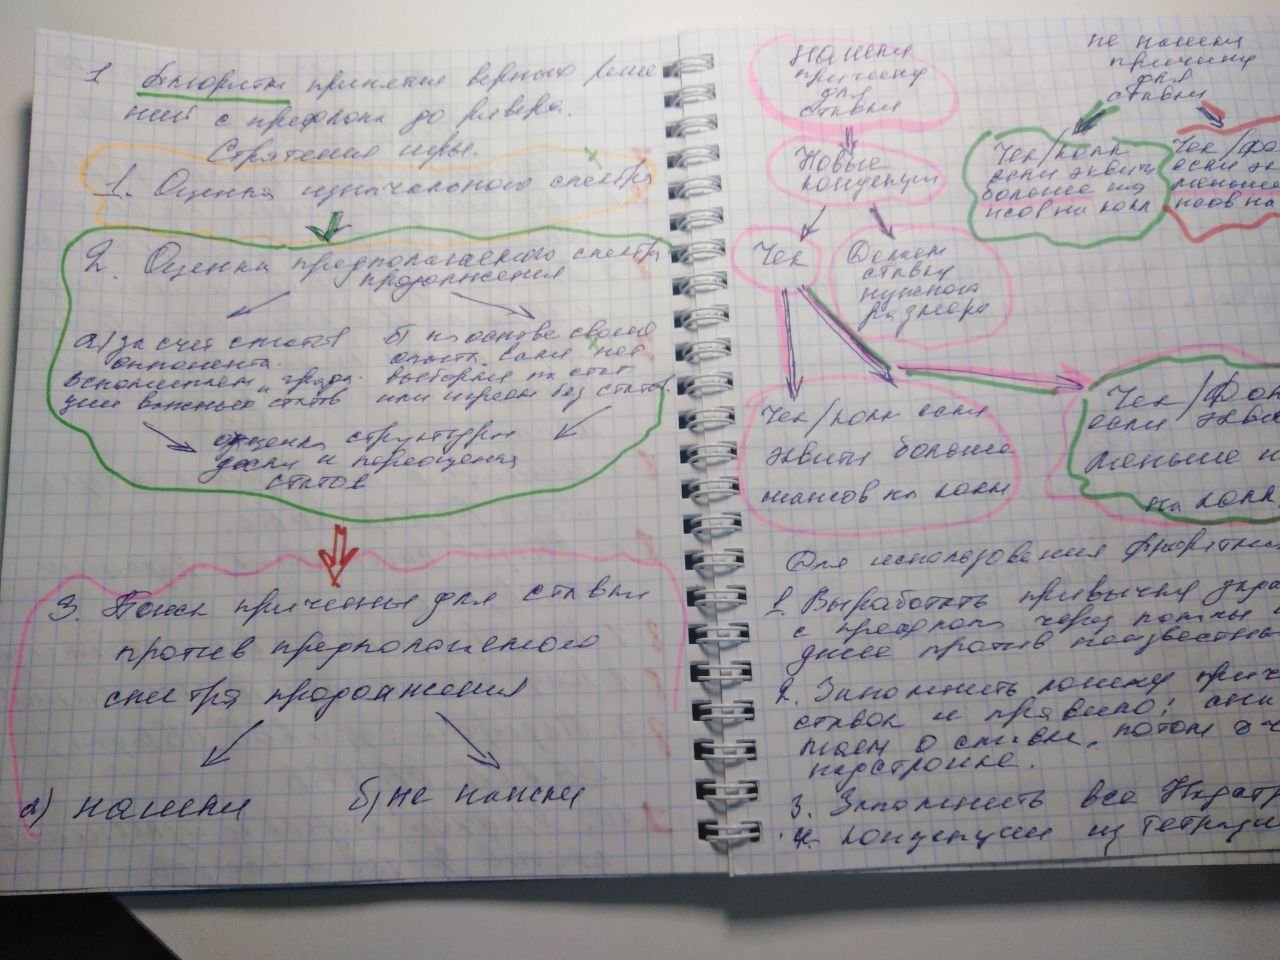 1 Алгоритм принятия верных реше
ний с префлопа до ривера.
Стратегия игры.
1. Оценка изначального спектра
2. Оценка предполагаемого спектра
продолжения
а) за счет статов
оппонента.
Вспоминаем града-
ции важных статов
б) на основе своего
опыта, если нет
выборки на стат
или играем без статов.
оценка структуры
доски и
статов
3. Поиск причины для ставки
против предполагаемого
спектра продолжения
а) нашли
б) не нашли
Нашли
причину
для
ставки
Новые
концепции
Чек
Делаем
ставку
нужного
размера
Чек/колл если
эквити больше
шансов на колл
не нашли
причину
для
ставки
Чек/колл
если эквити
больше ша
нсов на колл
Чек/фо
если эк
меньше
нсов на
Чек/Фол
если экви
меньше
на колл
Для использования Алгоритма
1. Выработать привычку
с префлопа через
против неизвестны
2. Запомнить прич
ставок и правило:
о стиле, потом о
надстройке.
3. Запомнить все
4. концепции из тетради